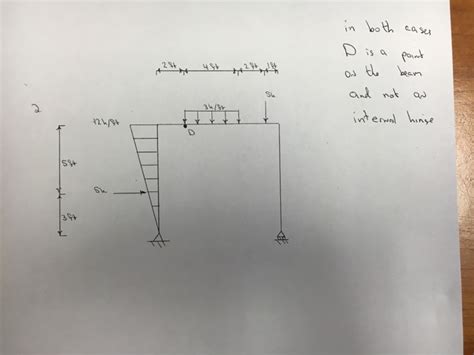 in both cases
D is a point
on the beam
and not an
internal hinge
2
2ft
4ft
2ft
1ft
5k
3k/ft
12k/ft
D
5ft
5k
3ft